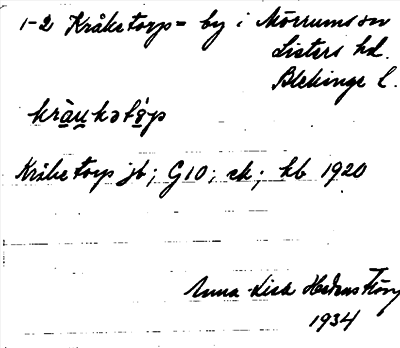 1-2 Kråketorp = by i Mörrums sn
Listers hd.
Blekinge l.
kràu̯kətå̀rp
Kråketorp jb; G10; ek; hb 1920
Anna-Lisa Hedenström
1934